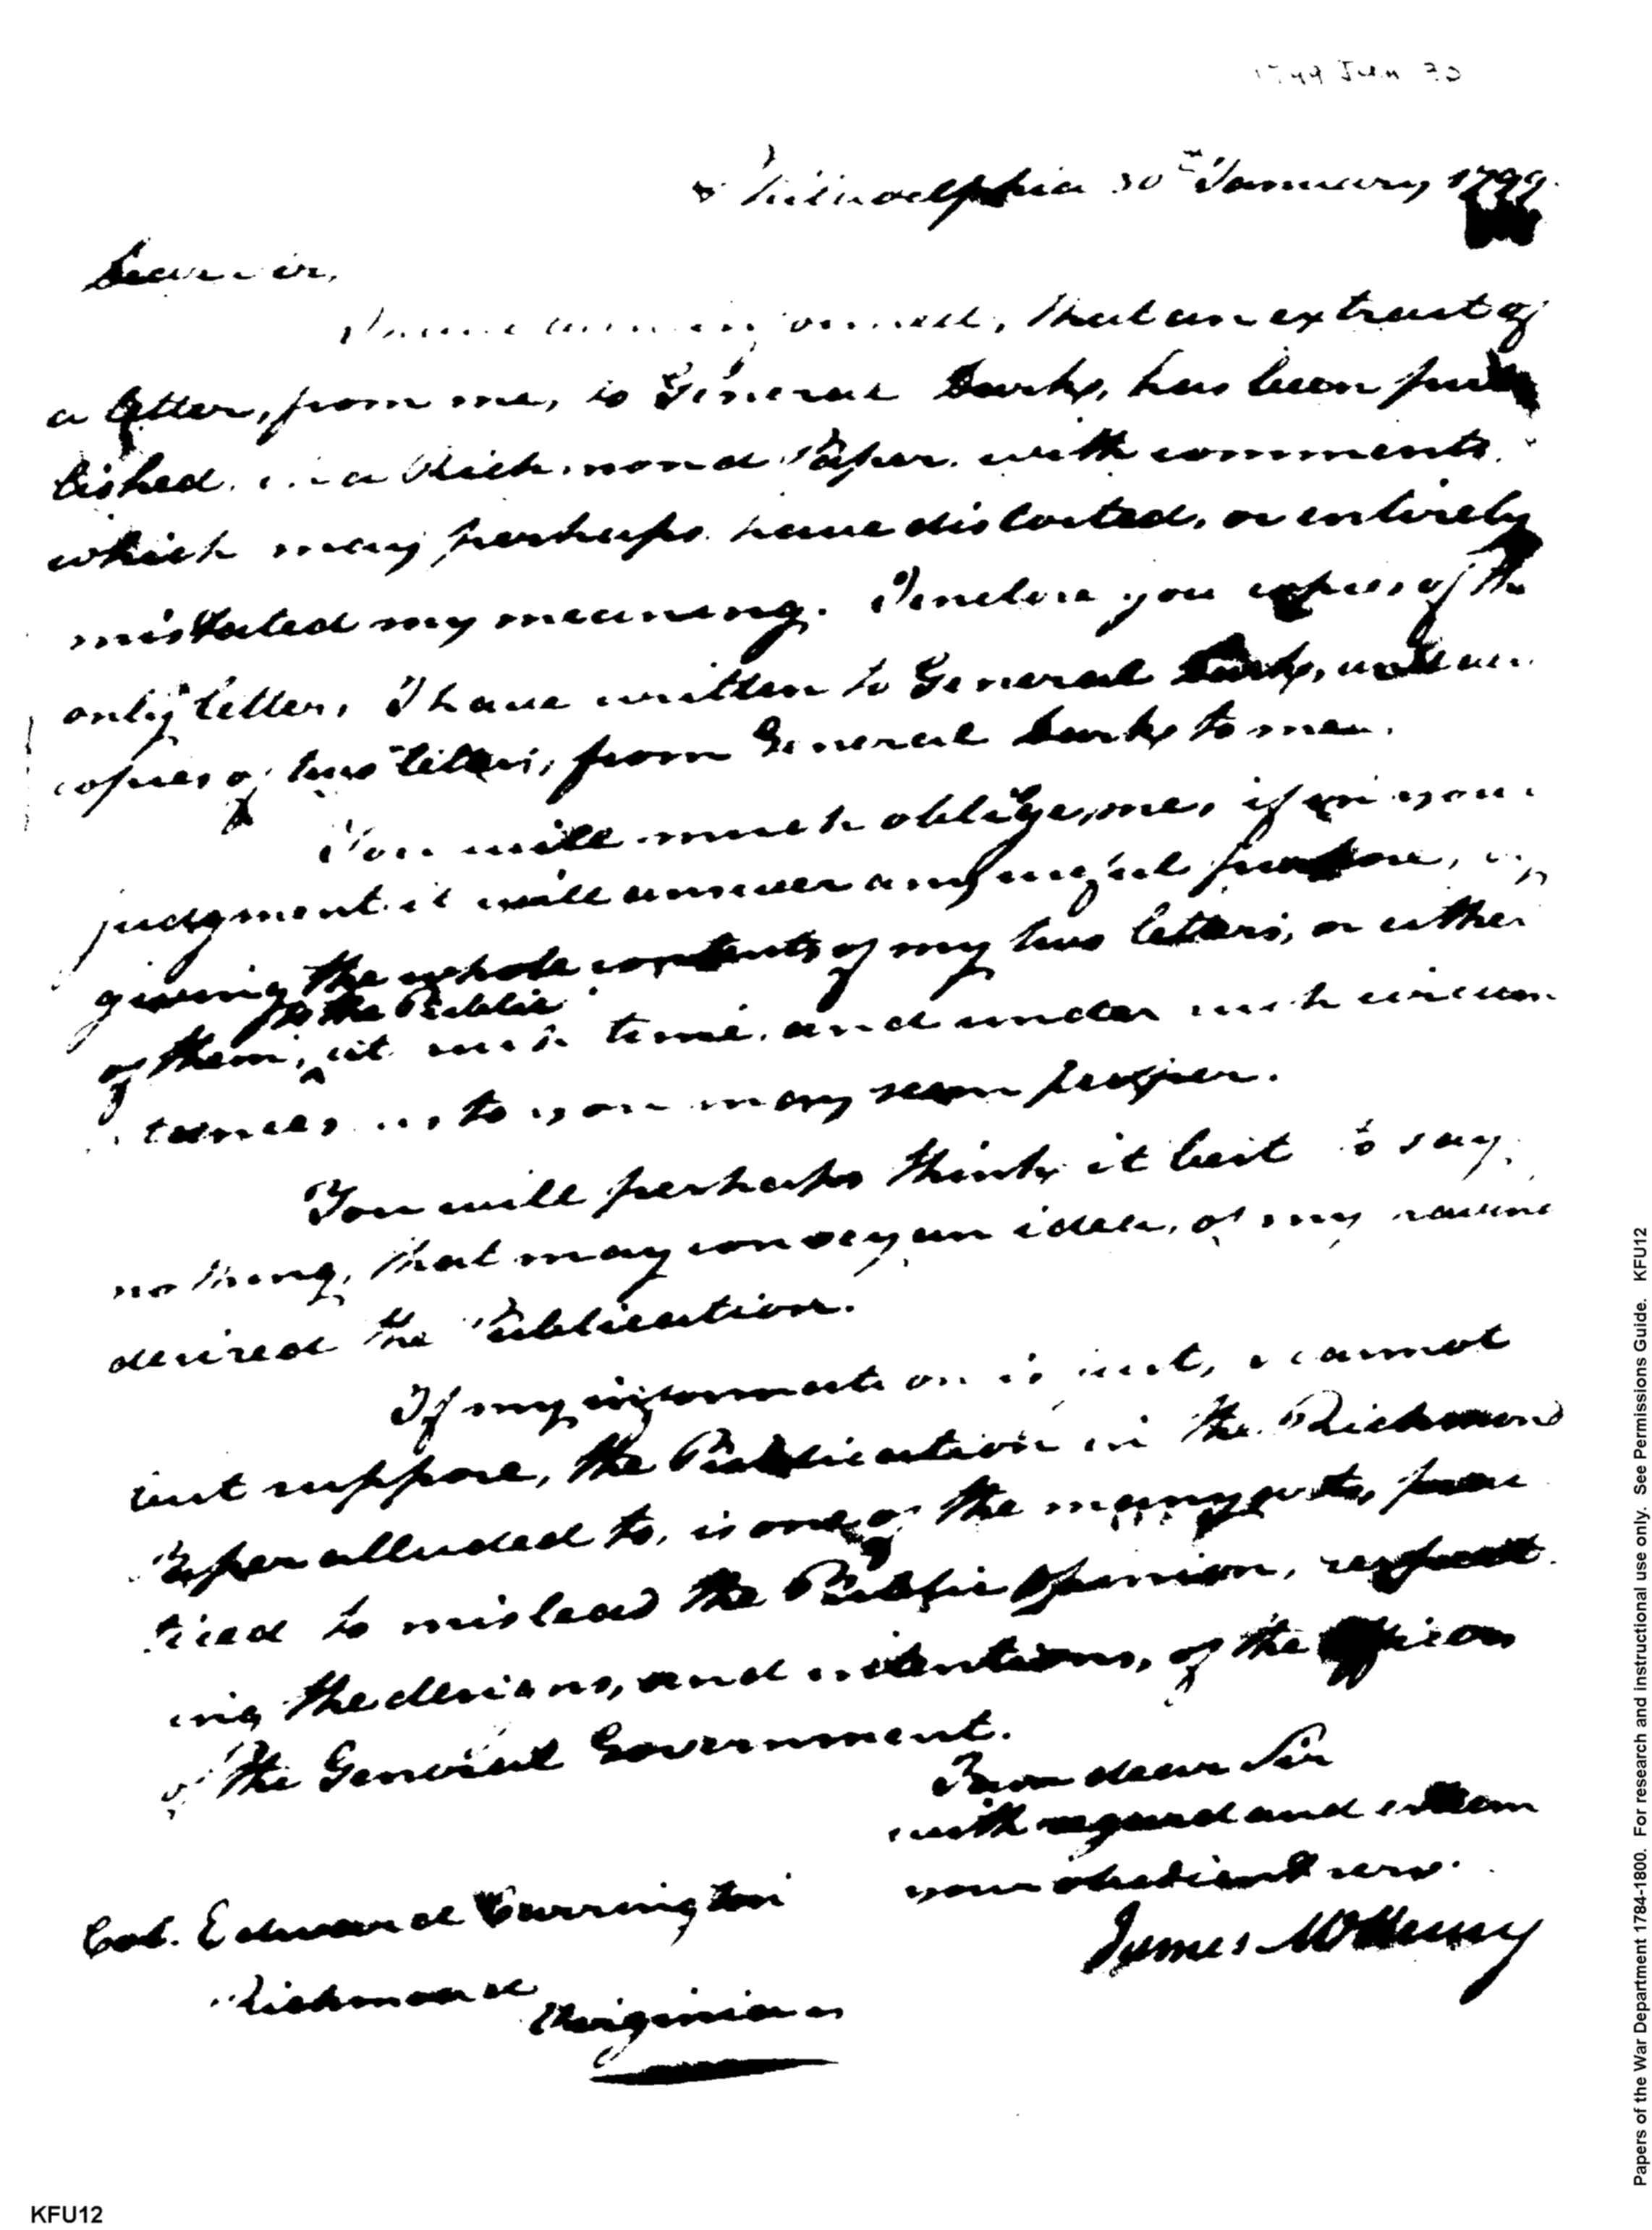 1799 Jan 30
Philadelphia 30th January 1799.
Dear Sir,
I have been informed, that an extract of
a letter, from me, to General Darke, has been pub
lished in a Richmond Paper with comments
which may perhaps have distorted, or entirely
mistated my meaning. I enclose you copies of the
only letters, I have written to General Darke, and also
copies of two letters, from General Darke to me.
You will much oblige, me, if in your
judgment it will answer any useful purpose, by
giving the whole contents of my two letters, or either
to the Public
of them, at such time, and under such circum
stances, as to you may seem proper.
You will perhaps think it best to say
nothing, that may convey an idea, of my having
desired the Publication.
If my information is just, I cannot
but suppose, the Publication in the Richmond
Paper alluded to, is one of the many arts, prac
ticed to mislead the Public opinion, respect
ing the designs, and intentions, of the officers
of the General Government.
I am dear Sir
with regard and esteem
your obedient serv.
James McHenry
Col. Edward Carrington
Richmond
Virginia
Papers of the War Department 1784-1800. For research and instructional use only. See Permissions Guide. KFU12
KFU12